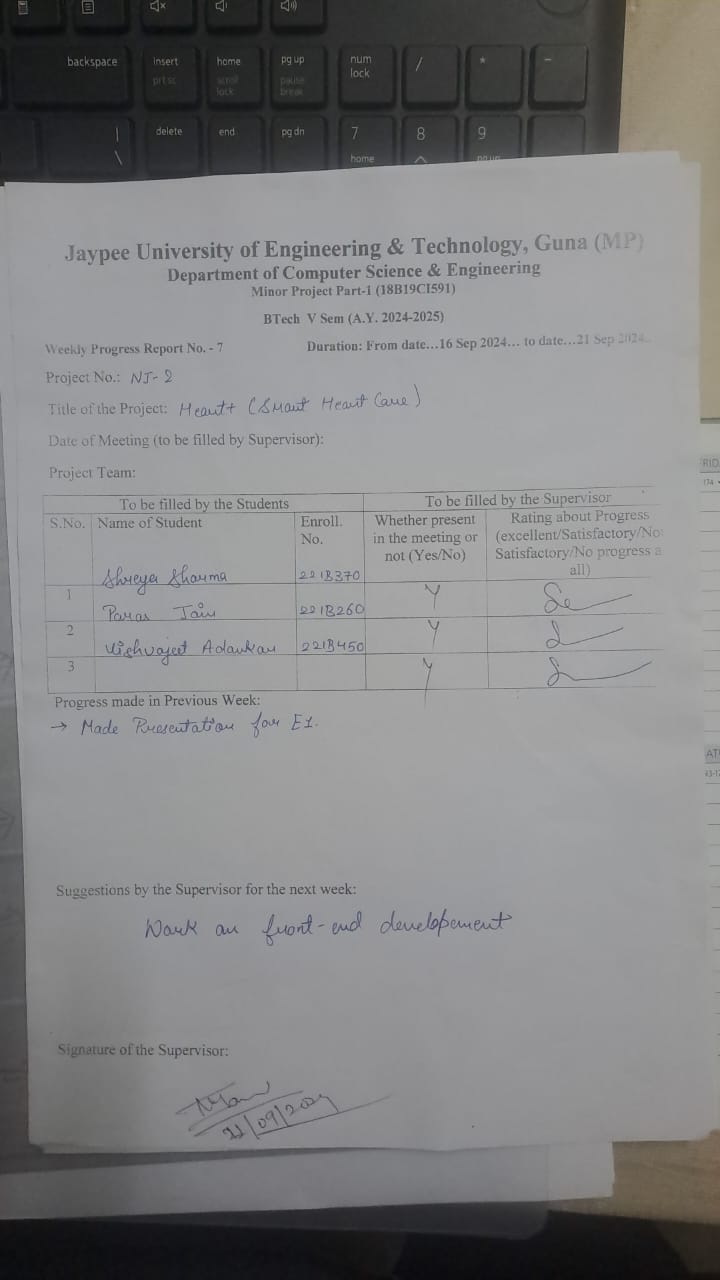 backspace
insert
prt sc
home
scroll
lock
pg up
pause
break
num
lock
/
*
-
|
\
delete
end
pg dn
7
home
8
9
pg up
Jaypee University of Engineering & Technology, Guna (MP)
Department of Computer Science & Engineering
Minor Project Part-1 (18B19CI591)
BTech V Sem (A.Y. 2024-2025)
Weekly Progress Report No. - 7 Duration: From date...16 Sep 2024... to date...21 Sep 2024..
Project No.: NJ-2
Title of the Project: Heart+ (Smart Heart Care)
Date of Meeting (to be filled by Supervisor):
Project Team:
To be filled by the Students To be filled by the Supervisor
S.No. Name of Student Enroll. No. Whether present in the meeting or not (Yes/No) Rating about Progress (excellent/Satisfactory/No Satisfactory/No progress a all)
1 Shreya Sharma 221B370 Y
2 Paras Jain 221B260 Y
3 Vishvajeet Adankar 221B450 Y
Progress made in Previous Week:
→ Made Presentation for E1.
Suggestions by the Supervisor for the next week:
Work on front-end developement
Signature of the Supervisor:
21/09/2024